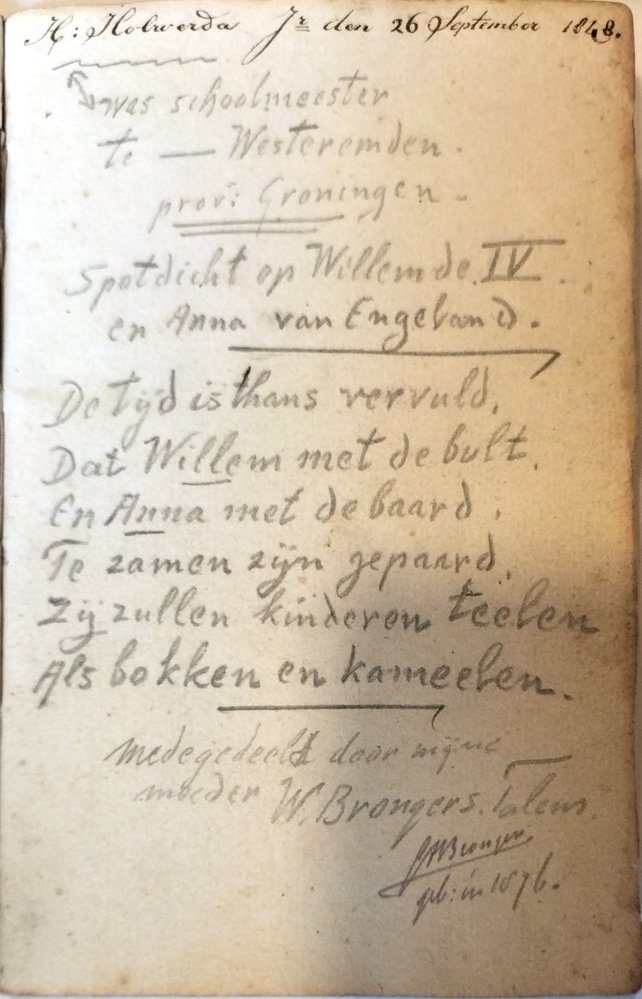 H: Holwerda Jr den 26 September 1848.
was schoolmeester
te — Westeremden.
prov: Groningen -
Spotdicht op Willem de IV
en Anna van Engeland.
De tijd is thans vervuld,
Dat Willem met de bult,
En Anna met de baard,
Te zamen zijn gepaard,
Zij zullen kinderen teelen
Als bokken en kameelen.
Medegedeeld door mijne
moeder W. Brongers. Talens.
Brongers
geb: in 1876.